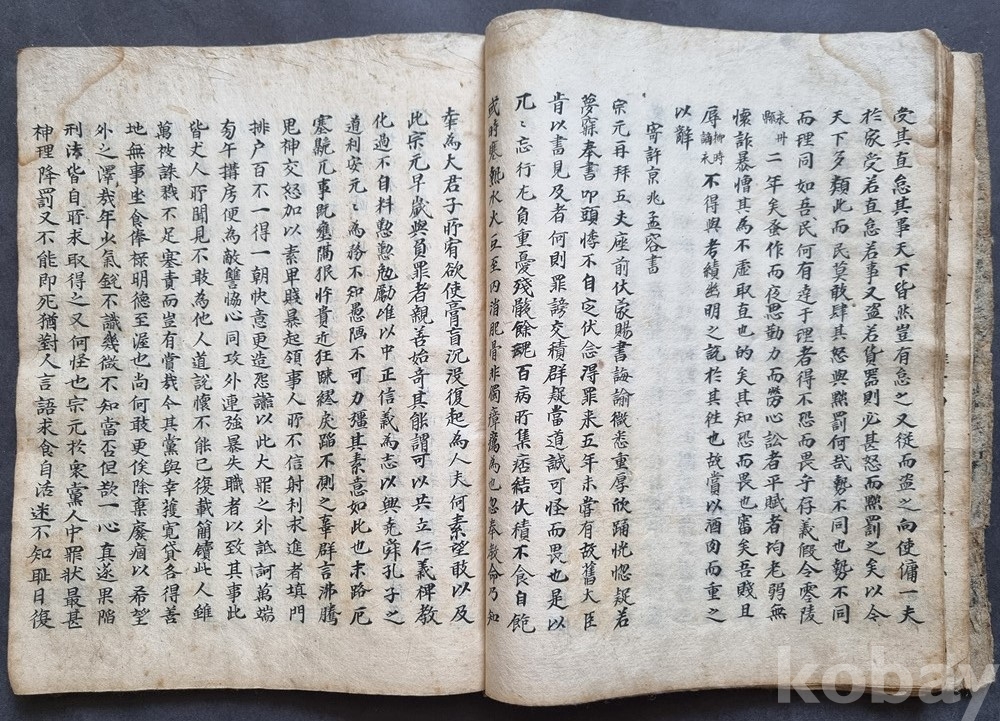 受其直怠其事天下皆然豈有怠之又從而盜之向使傭一夫
於家受若直怠若事又盜若貨器則必甚怒而黜罰之矣以今
天下多類此而民莫敢肆其怒與黜罰何哉勢不同也勢不同
而理同如吾民何有達于理者得不恐而畏乎存義假令零陵
永州縣二年矣蚤作而夜思勤力而勞心訟者平賦者均老弱無
懷詐暴憎其為不虛取直也的矣其知恐而畏也審矣吾賤且
辱柳時謫永不得與考績幽明之說於其往也故賞以酒肉而重之
以辭
寄許京兆孟容書
宗元再拜五丈座前伏蒙賜書誨諭微悉重厚欣踊恍惚疑若
夢寐奉書叩頭悸不自定伏念得罪来五年未嘗有故舊大臣
肯以書見及者何則罪謗交積群疑當道誠可怪而畏也是以
兀〻忘行尤負重憂殘骸餘魂百病所集痞結伏積不食自飽
或時寒熱水火互至內消肌骨非獨瘴癘為也忽奉教命乃知
幸為大君子所宥欲使膏肓沉沒復起為人夫何素望敢以及
此宗元早歲與負罪者親善始奇其能謂可以共立仁義裨教
化過不自料懃懃勉勵唯以中正信義為志以興堯舜孔子之
道利安元〻為務不知愚陋不可力彊其素意如此也末路厄
塞臲兀事既壅隔狠忤貴近狂疎繆戾蹈不測之辜群言沸騰
鬼神交怒加以素卑賤暴起領事人所不信射利求進者填門
排戶百不一得一朝快意更造怨讟以此大罪之外詆訶萬端
旁午搆扇便為敵讐恊心同攻外連強暴失職者以致其事此
皆丈人所聞見不敢為他人道說懷不能已復載簡牘此人雖
萬被誅戮不足塞責而豈有賞哉今其黨與幸獲寬貸各得善
地無事坐食俸祿明德至渥也尚何敢更俟除棄廢痼以希望
外之澤哉年少氣銳不識幾微不知當否但欲一心直遂果陷
刑法皆自所求取得之又何怪也宗元於衆黨人中罪狀最甚
神理降罰又不能即死猶對人言語求食自活迷不知恥日復
kobay